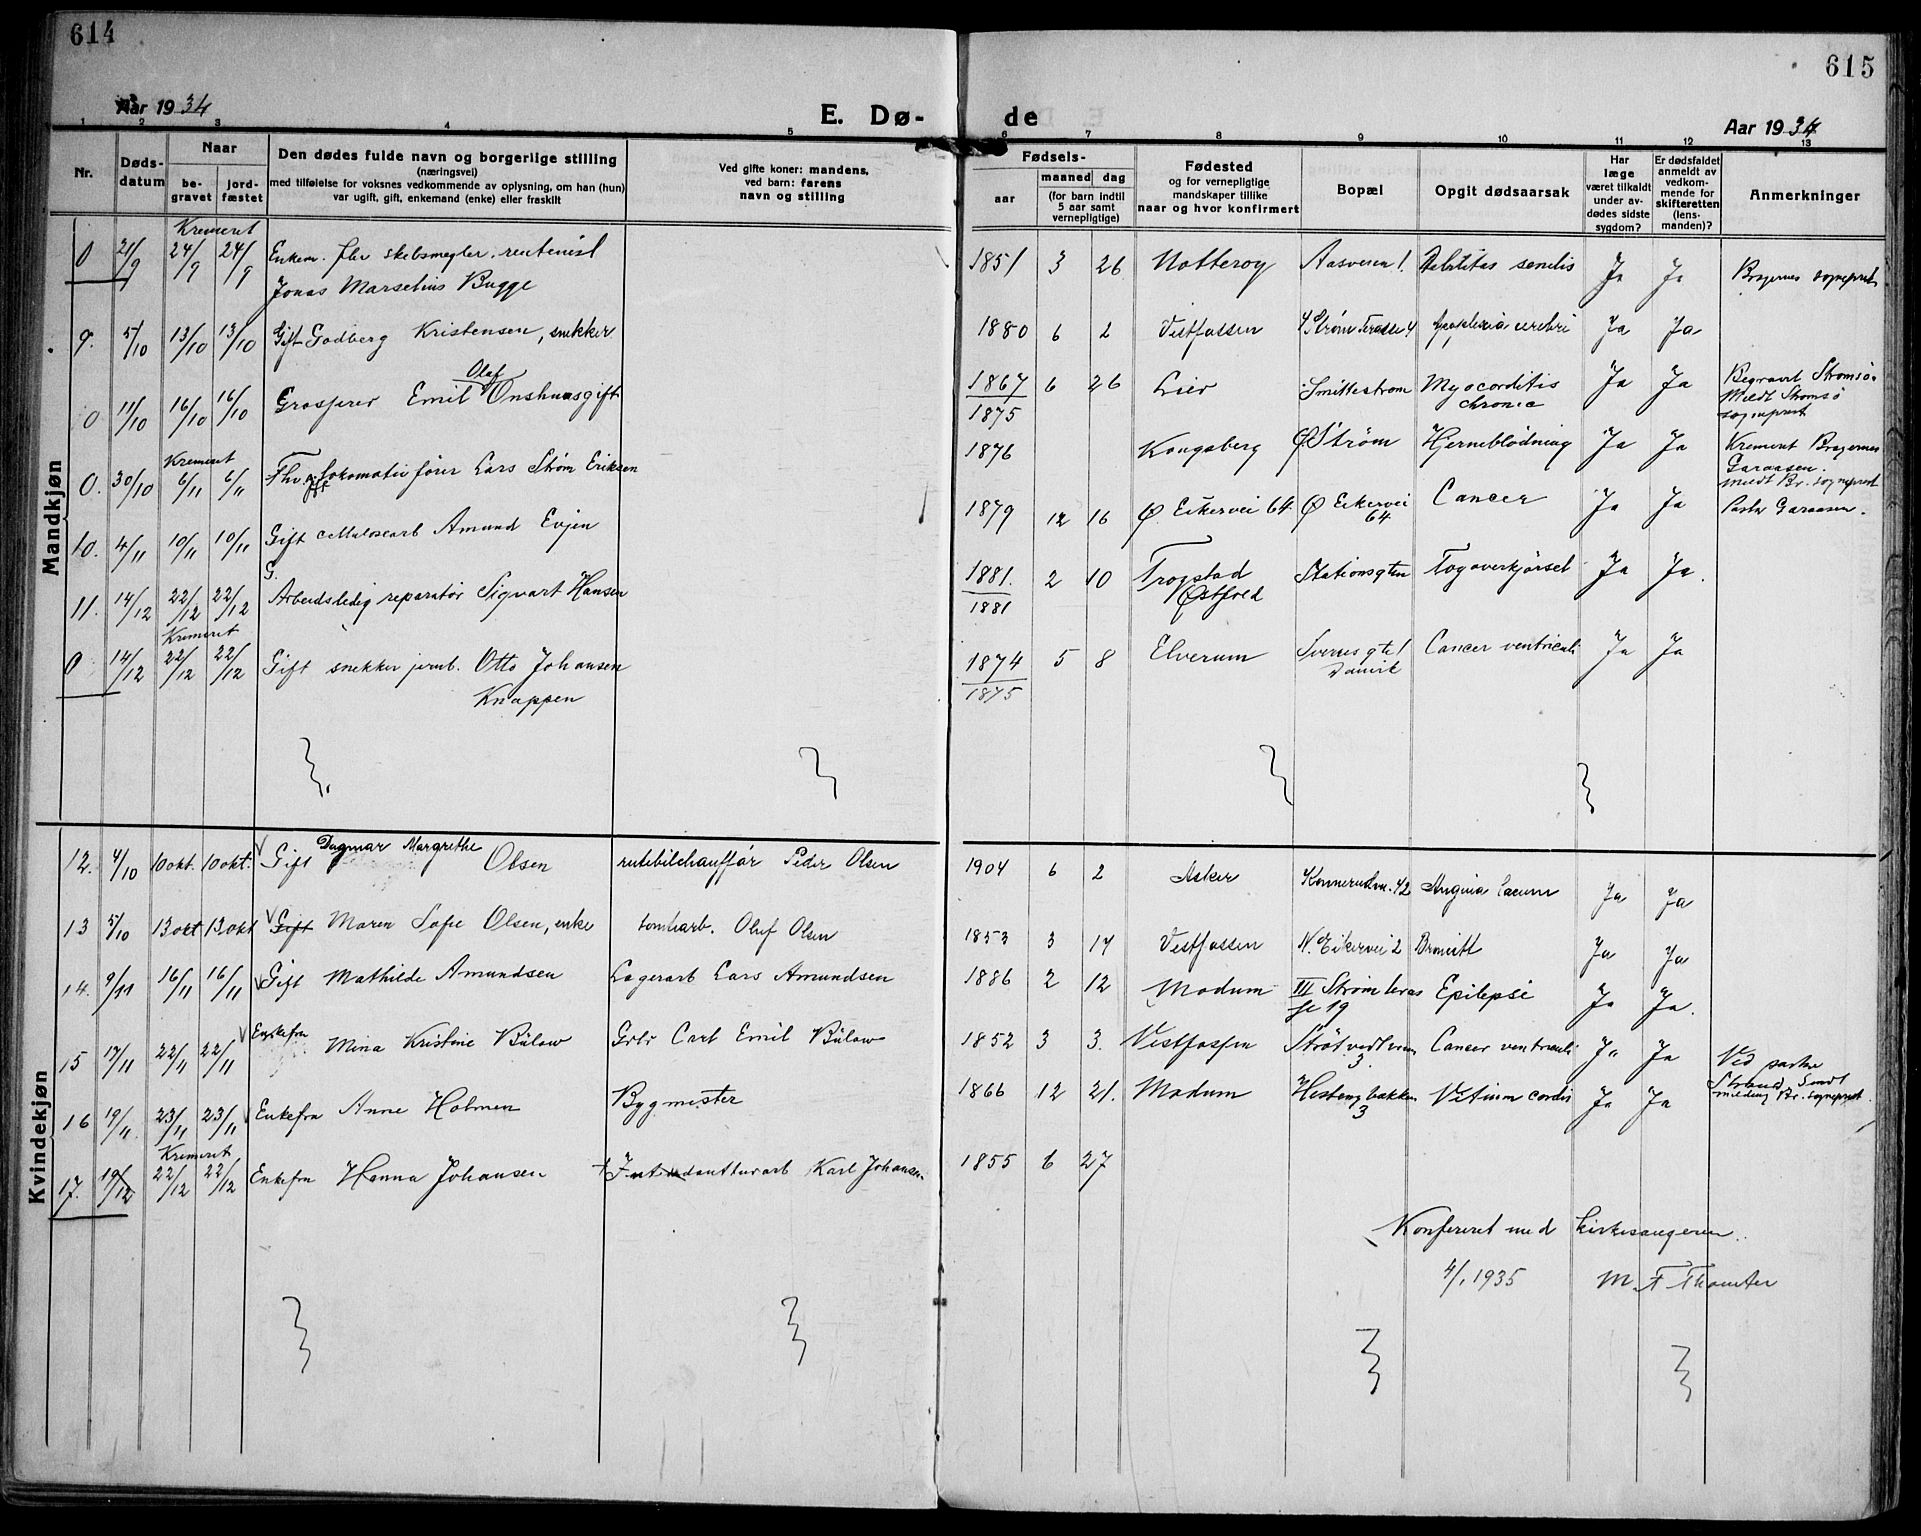 614
615
Aar 1934
E. Dø-
de
Aar 1934
1 2 3 4 5 6 7 8 9 10 11 12 13
Nr.
Døds-
datum
Naar
be-
gravet
jord-
fæstet
Den dødes fulde navn og borgerlige stilling
(næringsvei)
med tilføielse for voksnes vedkommende av oplysning, om han (hun)
var ugift, gift, enkemand (enke) eller fraskilt
Ved gifte koner: mandens,
ved barn: farens
navn og stilling
Fødsels-
aar
maaned dag
(for barn indtil
5 aar samt
vernepligtige)
Fødested
og for vernepligtige
mandskaper tillike
naar og hvor konfirmert
Bopæl
Opgit dødsaarsak
Har
læge
været tilkaldt
under av-
dødes sidste
sygdom?
Er dødsfaldet
anmeldt av
vedkom-
mende for
skifteretten
(lens-
manden)?
Anmerkninger
Mandkjøn
Kremeret
0 21/9 24/9 24/9 Enkem. fhv skibsmegler, rentenist 1851 3 26 Nøtterøy Aasveien 1. Debilitas senilis Ja Ja Bragernes sogneprest
Jonas Marselius Bugge
9. 5/10 13/10 13/10 Gift Godberg Kristensen, snekker 1880 6 2 Vestfossen Strøm Terasse 4 Apoplexia cerebri Ja Ja
Olaf
0 11/10 16/10 16/10 Grosserer Emil Onshuus gift 1867 6 26 Lier Smittestrøm Myocorditis Ja Ja Begravet Strømsø
1875 chronic Meldt Strømsø
sogneprest
Kremeret
0. 30/10 6/11 6/11 Fhv. lokomotivfører Lars Strøm Eriksen 1876 Kongsberg Ø Strøm Hjerneblødning Ja Ja Kremeret Bragernes
Garaasen.
meldt Br. sogneprest
10. 4/11 10/11 10/11 Gift cellulosearb Amund Evjen 1879 12 16 Ø. Eikervei 64 Ø Eikervei Cancer Ja Ja Pastor Garaasen.
64
G.
11. 14/12 22/12 22/12 Arbeidsledig reparatør Sigvart Hansen 1881. 2 10 Trøgstad Stationsgten Togoverkjørsel Ja Ja.
1881 Østfold
Kremeret
0 14/12 22/12 22/12 Gift snekker jernb. Otto Johansen 1874 5 8 Elverum Sverresgte 1 Cancer ventriculi Ja Ja
Knappen 1875
Kvindekjøn
Dagmar Margrethe
12. 4/10 10 okt. 10 okt. Gift Olsen rutebilchauffør Peder Olsen 1904 6 2 Asker Konnerudvn. 42 Angina Ja Ja
13 5/10 13 okt 13 okt Gift Maren Sofie Olsen, enke tomtearb. Oluf Olsen 1853 3 17 Vestfossen N. Eikervei 2 Bronsitt Ja Ja
14. 9/11 16/11 16/11 Gift Mathilde Amundsen Lagerarb Lars Amundsen 1886 2 12 Modum III Strømteras Epilepsi Ja Ja.
se 19
Enkefru
15 17/11 22/11 22/11 Mina Kristine Bülow Grbr Carl Emil Bülow 1852 3 3. Vestfossen Strøtvedtveien Cancer ventriculi Ja Ja Ved pastor
3. Strand, Smdl
16 19/11. 23/11 23/11 Enkefru Anne Holmen Bygmester 1866 12 21. Modum Hestengbakken Vitium cordis Ja Ja melding Br. sogneprest.
3
Kremeret
17. 19/12 22/12 22/12 Enkefru Hanna Johansen + Intendanturarb Karl Johansen 1855 6 27
Konfereret med kirkesangeren.
4/1 1935 M F Thomter